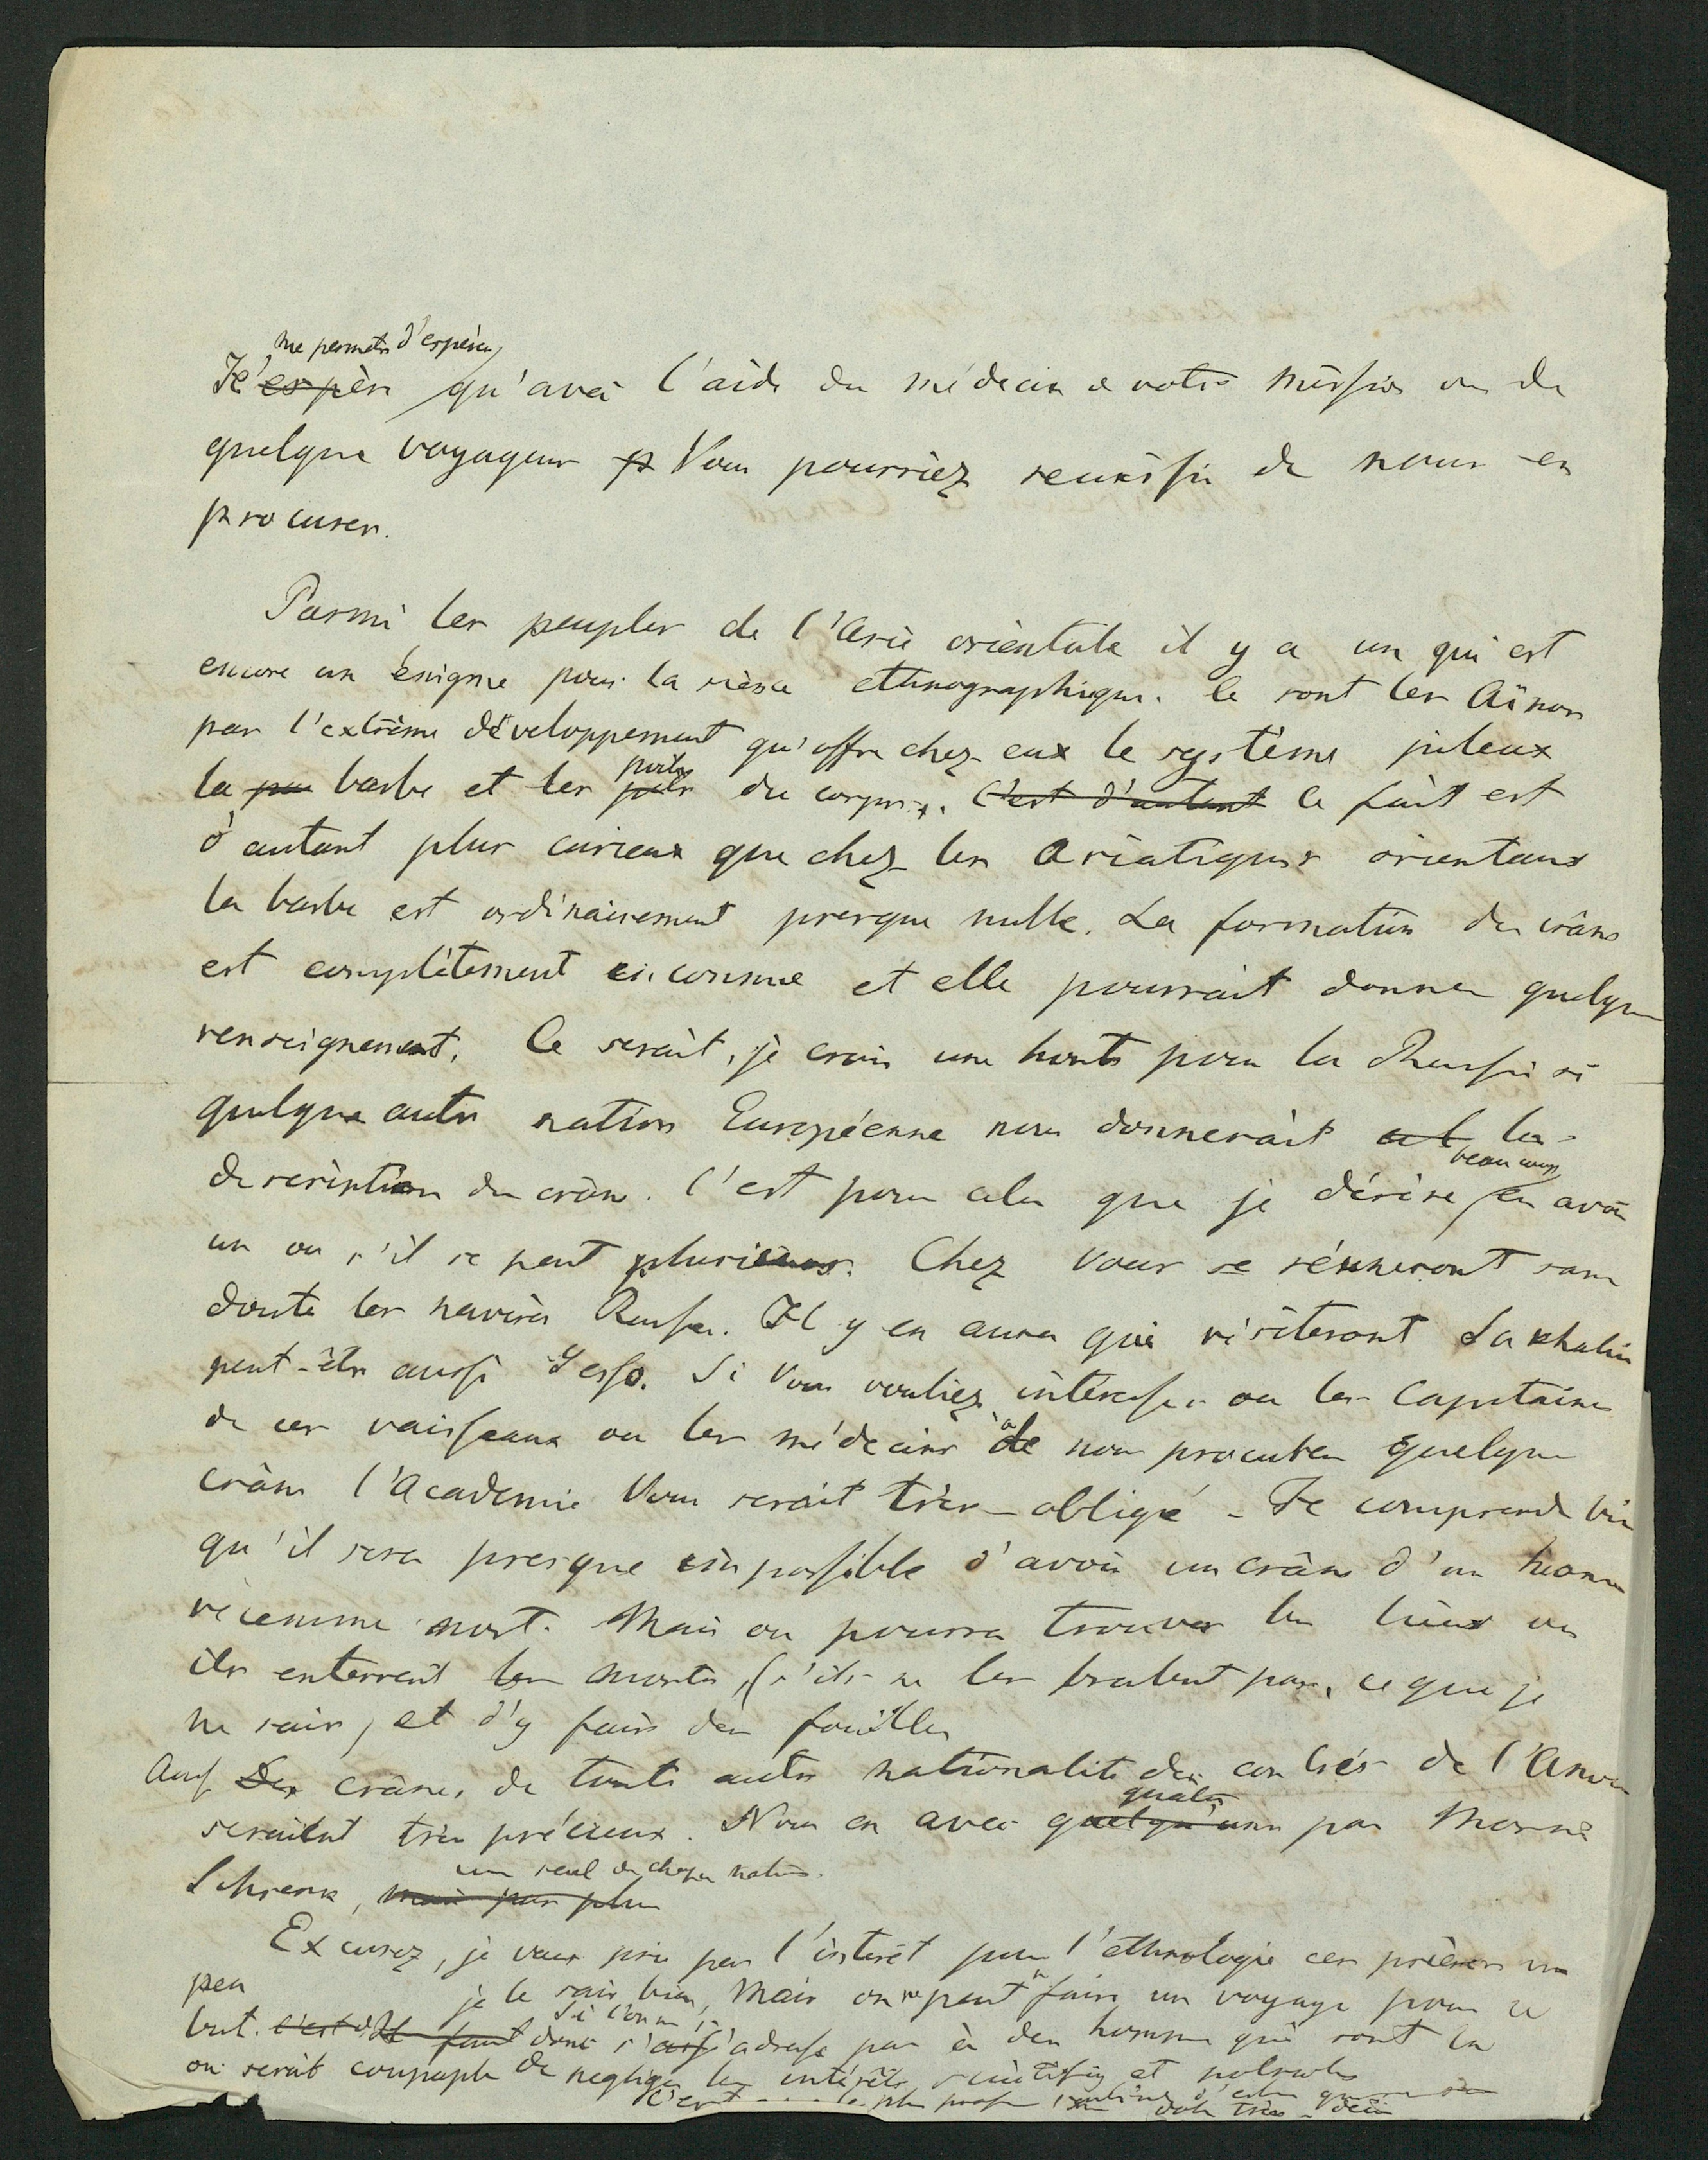 me permets d'espérer
Je espère qu'avec l'aide du médecin de votre mission ou de
quelque voyageur Vous pourriez reuissir de nous en
procurer.
Parmi les peuples de l'Asie orientale il y a un qui est
encore un énigme pour la sience ethnographique. Ce sont les Aïnos
par l'extrème développement qu'offre chez eux le système pileux
la barbe et les poiles du corps. C'est d'autant Ce fait est
d'autant plus curieux que chez les Asiatiques orientaux
la barbe est ordinairement presque nulle. La formation du crâne
est complètement inconnue et elle pourrait donner quelque
renseignement. Ce serait, je crois une honte pour la Russie si
quelque autre nation Européenne nous donnerait la
beaucoup
description du crâne. C'est pour cela que je désire en avoir
un ou s'il se peut plusieurs. Chez Vous se réuneront sans
doute les navires Russes. Il y en aura qui visiteront Sakhalin
peut-être aussi Jesso. Si Vous vouliez intéresser ou les Capitaines
de ces vaisseaux ou les médecins à de nous procurer quelque
crâne l'Academie Vous serait très-obligé - Je comprends bien
qu'il sera presque impossible d'avoir un crâne d'un homme
récemme mort. Mais on pourra trouver les lieux ou
ils enterrent les morts, (s'ils ne les brulent pas, ce que je
ne sais, et d'y faire des fouilles
Des crânes de toute autre nationalité des contrés de l'Amour
quatre
seraient très précieux. Nous en avec quelqu'uns par Monsi
un seul de chaque nation.
Schrenk, mais pas plus
Excusez, je vous prie par l'intérêt pour l'ethnologie ces prières un
peu je le sais bien, Mais on ne peut faire un voyage pour ce
Si l'on ne
but. C'est Il faut donc s'adresse pas à des hommes qui sont la
on serait coupaple de negliger les intérêts
C'est